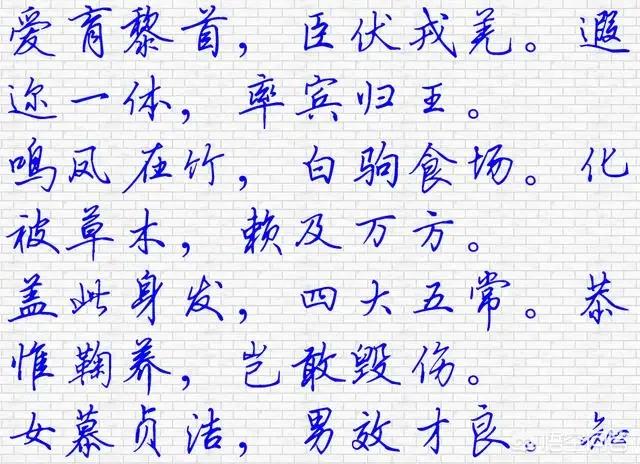 爱育黎首，臣伏戎羌。遐
迩一体，率宾归王。
鸣凤在竹，白驹食场。化
被草木，赖及万方。
盖此身发，四大五常。恭
惟鞠养，岂敢毁伤。
女慕贞洁，男效才良。知